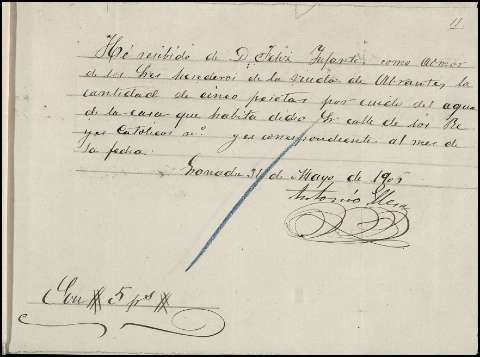 11
Hé recibido de D. Felix Infante como Admor
de los Sres herederos de la viuda de Abrantes la
cantidad de cinco pesetas por cuido del agua
de la casa que habita dicho Sr. calle de los Re
yes Catolicos nº. y es correspondiente al mes de
la fecha.
Granada 31 de Mayo de 1905
Antonio
Son # 5 pts #